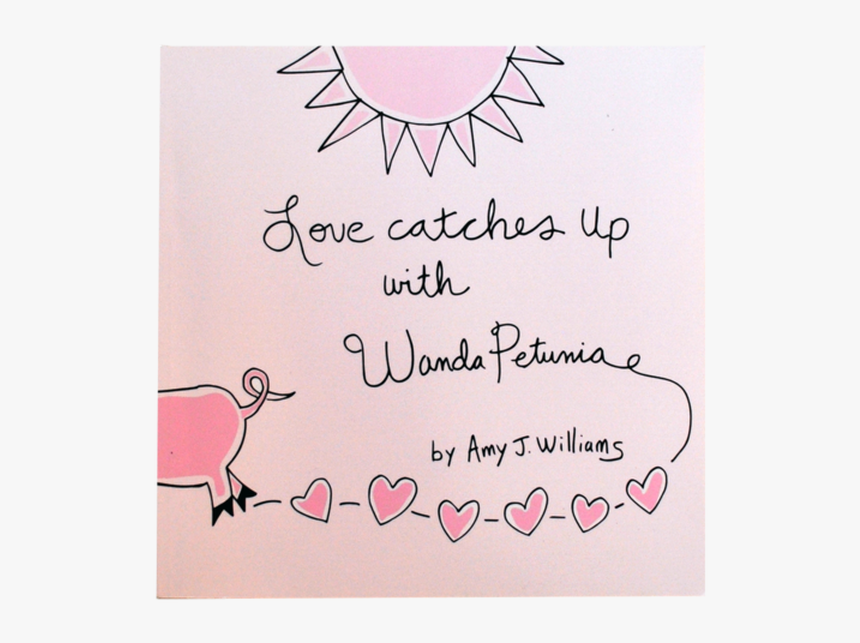 Love catches Up
with
Wanda Petunia
by Amy J. Williams